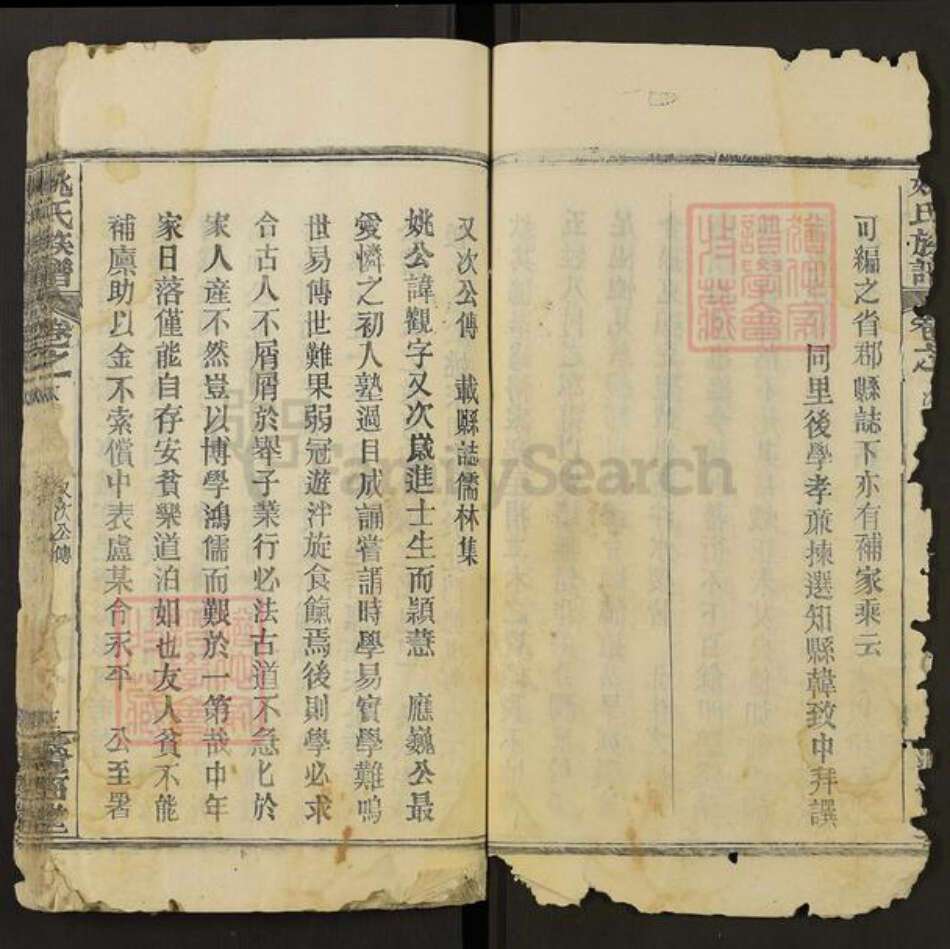 氏族譜
可編之省郡縣誌下亦有補家乘云
同里後學孝亷揀選知縣韓致中拜譔
又次公傳 載縣誌儒林集
姚公諱觀字又次歲進士生而穎慧 應巍公最
愛憐之初入塾過目成誦嘗謂時學易實學難鳴
世易傳世難果弱冠遊泮旋食餼焉後則學必求
合古人不屑屑於舉子業行必法古道不急乜於
家人産不然豈以博學鴻儒而艱於一第哉中年
家日落僅能自存安貧樂道泊如也友人貧不能
補廩助以金不索償中表盧某合永平 公至署
姚氏族譜
卷之一
又次公傳
FamilySearch